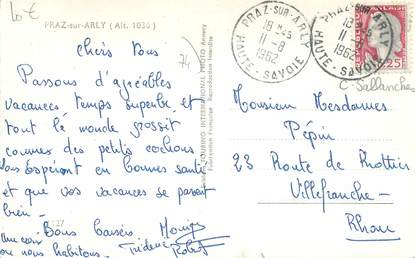 10 €
PRAZ-sur-ARLY (Alt. 1036)
74
Chers Tous
Passons d'agréables
vacances temps superbe et
tout le monde grossit
comme des petits cochons
Vous espérons en bonnes santé
et que vos vacances se passent
bien.
Bons baisers Monique
Frédéric Robert
Une croix
où nous habitons.
INTERNATIONAL PHOTO Annecy
PRAZ-SUR-ARLY
18 H45
11-8
1962
HAUTE-SAVOIE
PRAZ-SUR-ARLY
18 H
11
1962
HAUTE-SAVOIE
0,25
C. Sallanches
Monsieur Mesdames
Pépin
23 Route de
Villefranche-
Rhône